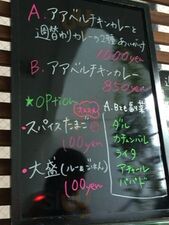 A. アアベルチキンカレーと
週替わりカレーの2種あいがけ
1000yen
B. アアベルチキンカレー
850yen
★OPtion
スパイスたまご
100yen
・大盛(ルー&ごはん)
100yen
A.Bとも副菜
ダル
カチュンバル
ライタ
アチャール
パパド